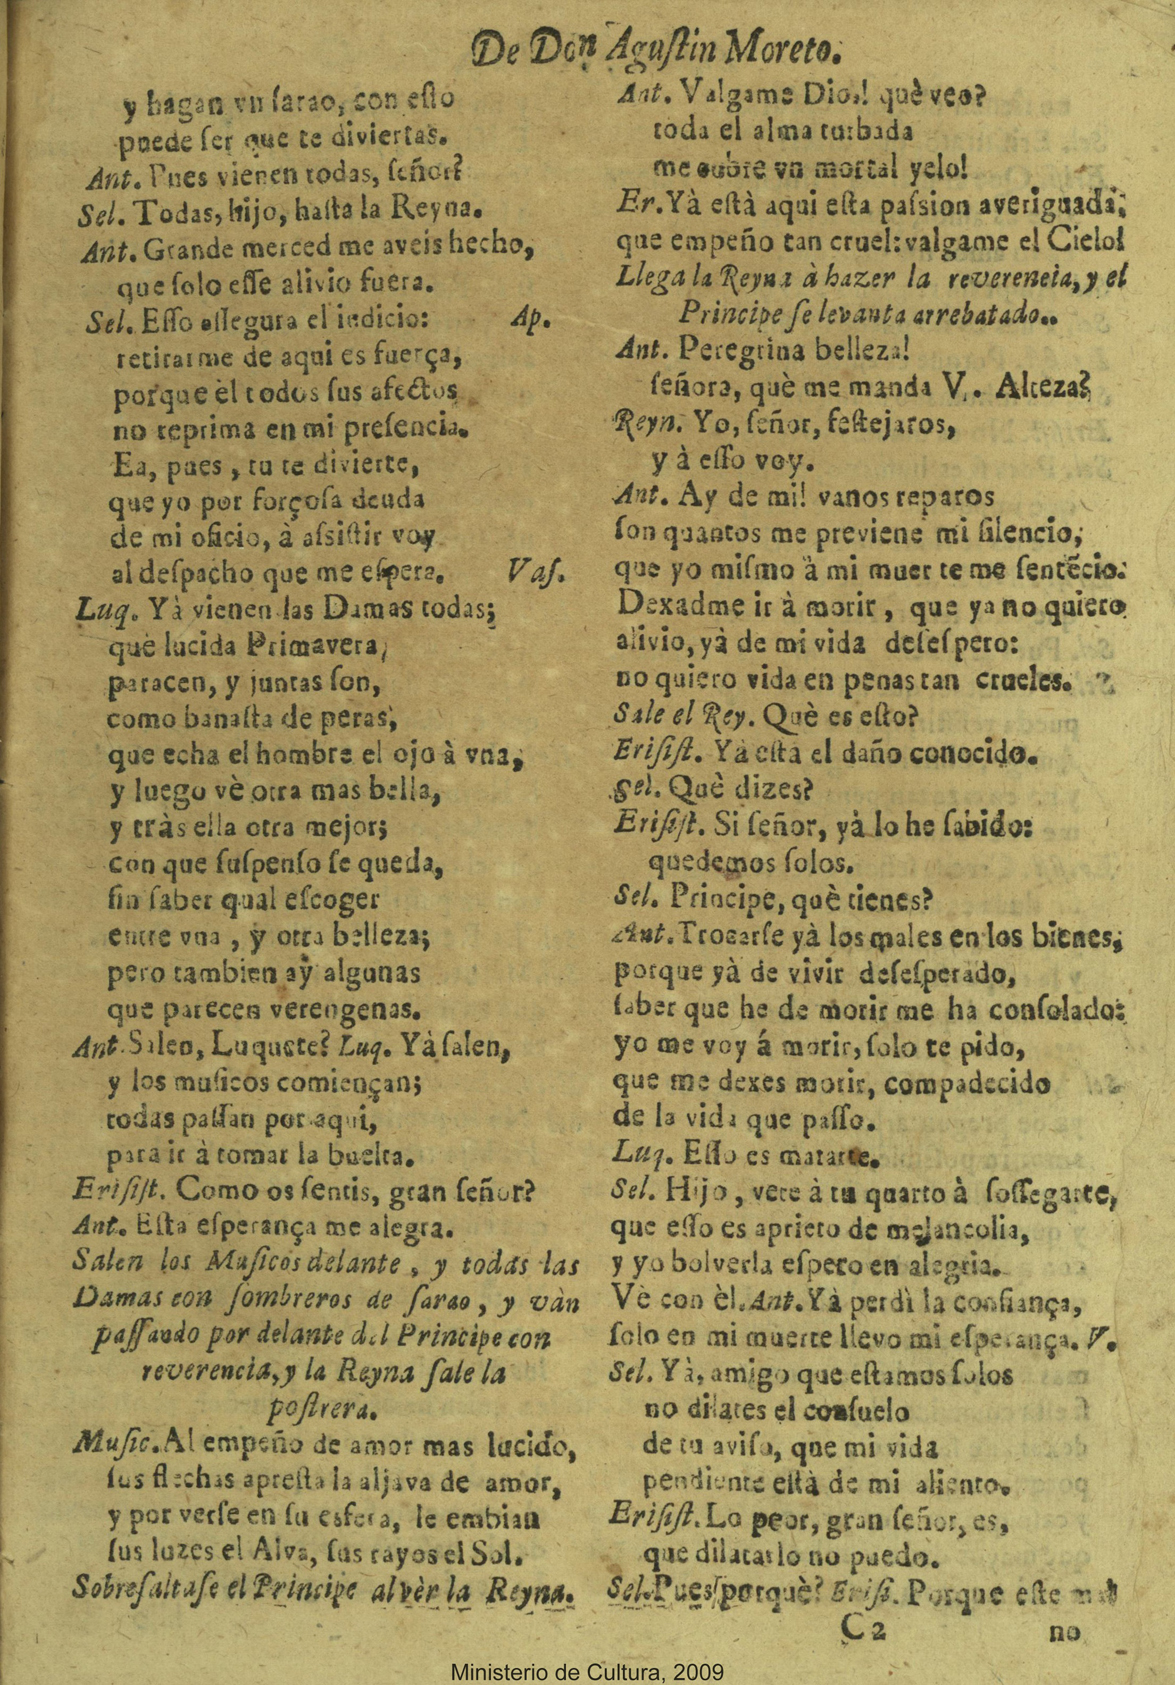 De Don Agustin Moreto.
y hagan vn sarao, con esto
puede ser que te diviertas.
Ant. Pues vienen todas, señor?
Sel. Todas, hijo, hasta la Reyna.
Ant. Grande merced me aveis hecho,
que solo esse alivio fuera.
Sel. Esso assegura el indicio: Ap.
retirarme de aqui es fuerça,
porque èl todos sus afectos
no reprima en mi presencia.
Ea, pues, tu te divierte,
que yo por forçosa deuda
de mi oficio, à assistir voy
al despacho que me espera. Vas.
Luq. Yà vienen las Damas todas;
què lucida Primavera,
paracen, y juntas son,
como banasta de peras,
que echa el hombre el ojo à vna,
y luego vè otra mas bella,
y tràs ella otra mejor;
con que suspenso se queda,
sin saber qual escoger
entre vna, y otra belleza;
pero tambien ay algunas
que parecen verengenas.
Ant. Salen, Luquete? Luq. Yà salen,
y los musicos comiençan;
todas passan por aqui,
para ir à tomar la buelta.
Erisist. Como os sentis, gran señor?
Ant. Esta esperança me alegra.
Salen los Musicos delante, y todas las
Damas con sombreros de sarao, y vàn
passando por delante del Principe con
reverencia, y la Reyna sale la
postrera.
Music. Al empeño de amor mas lucido,
sus flechas apresta la aljava de amor,
y por verse en su esfera, le embian
sus luzes el Alva, sus rayos el Sol.
Sobresaltase el Principe al vèr la Reyna.
Ant. Valgame Dios! què veo?
toda el alma turbada
me cubre vn mortal yelo!
Er. Yà està aqui esta passion averiguada;
que empeño tan cruel: valgame el Cielo!
Llega la Reyna à hazer la reverencia, y el
Principe se levanta arrebatado.
Ant. Peregrina belleza!
señora, què me manda V. Alteza?
Reyn. Yo, señor, festejaros,
y à esso voy.
Ant. Ay de mi! vanos reparos
son quantos me previene mi silencio,
que yo mismo à mi muerte me sentẽcio.
Dexadme ir à morir, que ya no quiero
alivio, yà de mi vida desespero:
no quiero vida en penas tan crueles.
Sale el Rey. Què es esto?
Erisist. Yà està el daño conocido.
Sel. Què dizes?
Erisist. Si señor, yà lo he sabido:
quedemos solos.
Sel. Principe, què tienes?
Ant. Trocarse yà los males en los bienes;
porque yà de vivir desesperado,
saber que he de morir me ha consolado:
yo me voy á morir, solo te pido,
que me dexes morir, compadecido
de la vida que passo.
Luq. Esso es matarte.
Sel. Hijo, vete à tu quarto à sossegarte,
que esso es aprieto de melancolia,
y yo bolverla espero en alegria.
Vè con èl. Ant. Yà perdì la confiança,
solo en mi muerte llevo mi esperança. V.
Sel. Yà, amigo que estamos solos
no dilates el consuelo
de tu aviso, que mi vida
pendiente està de mi aliento.
Erisist. Lo peor, gran señor, es,
que dilatarlo no puedo.
Sel. Pues porquè? Erisi. Porque este mal
C2 no
Ministerio de Cultura, 2009